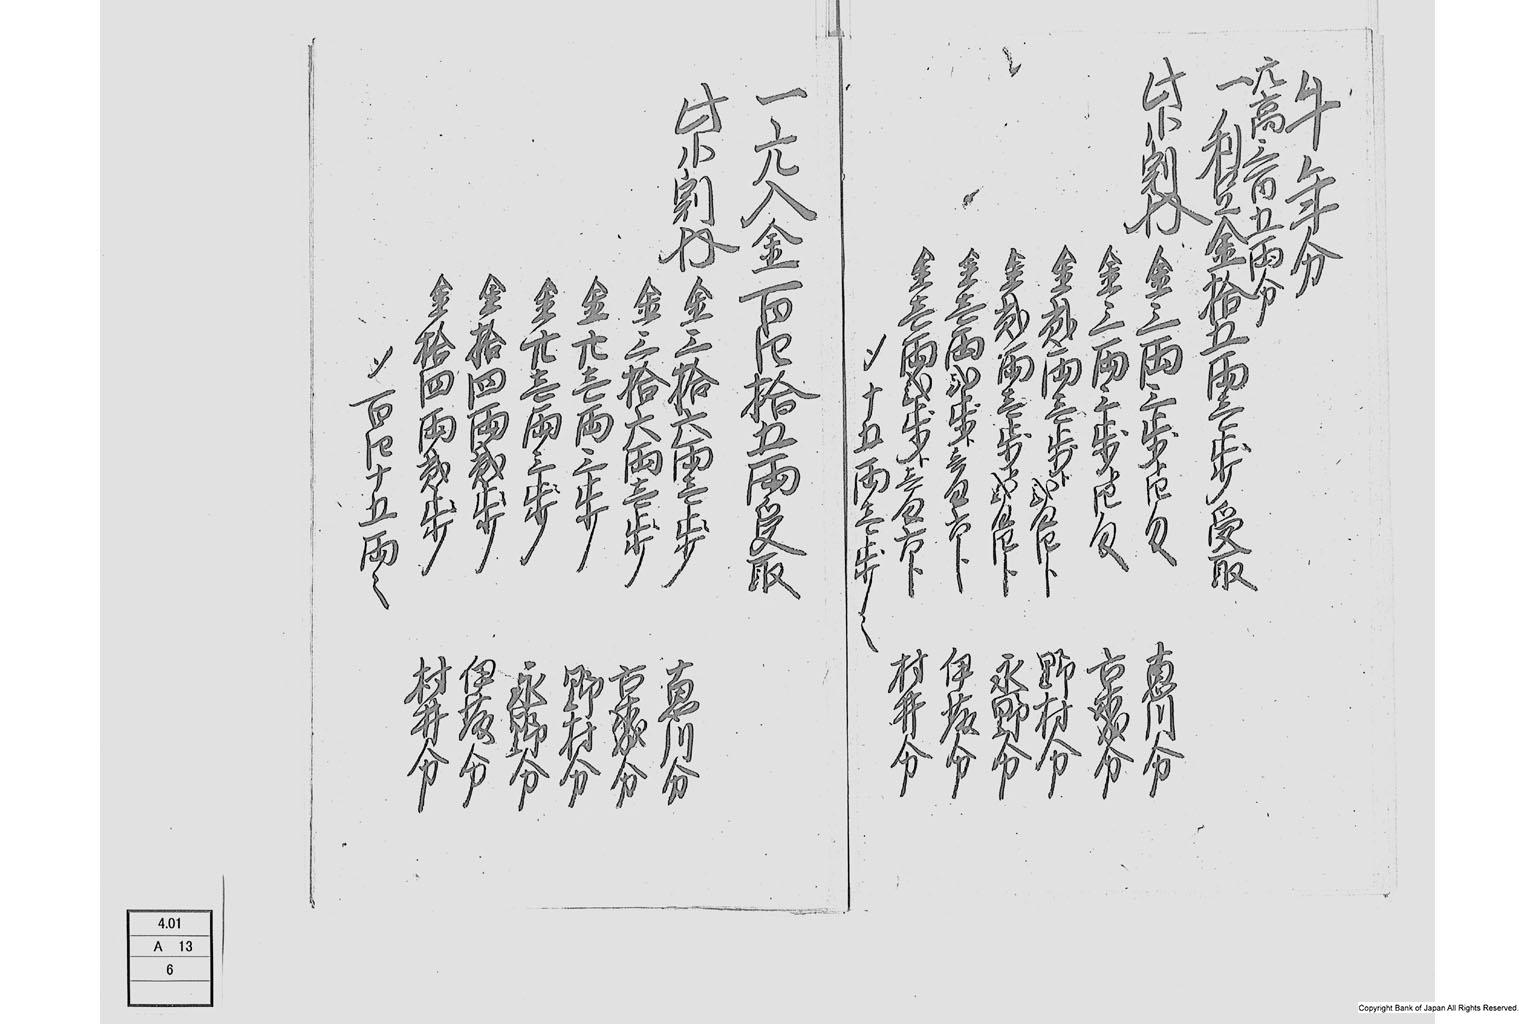 午年分
元高三百五両分
一利足金拾五両三歩受取
此小割符
金三両三歩 恵川分
金三両三歩 分
金弐両壱歩 野村分
金弐両壱歩 永野分
金壱両弐歩 伊藤分
金壱両弐歩 村井分
〆十五両三歩也
一元入金百四拾五両受取
此小割符
金三拾六両壱歩 恵川分
金三拾六両壱歩 分
金廿壱両三歩 野村分
金廿壱両三歩 永野分
金拾四両弐歩 伊藤分
金拾四両弐歩 村井分
〆百四十五両也
4.01
A 13
6
Copyright Bank of Japan All Rights Reserved.